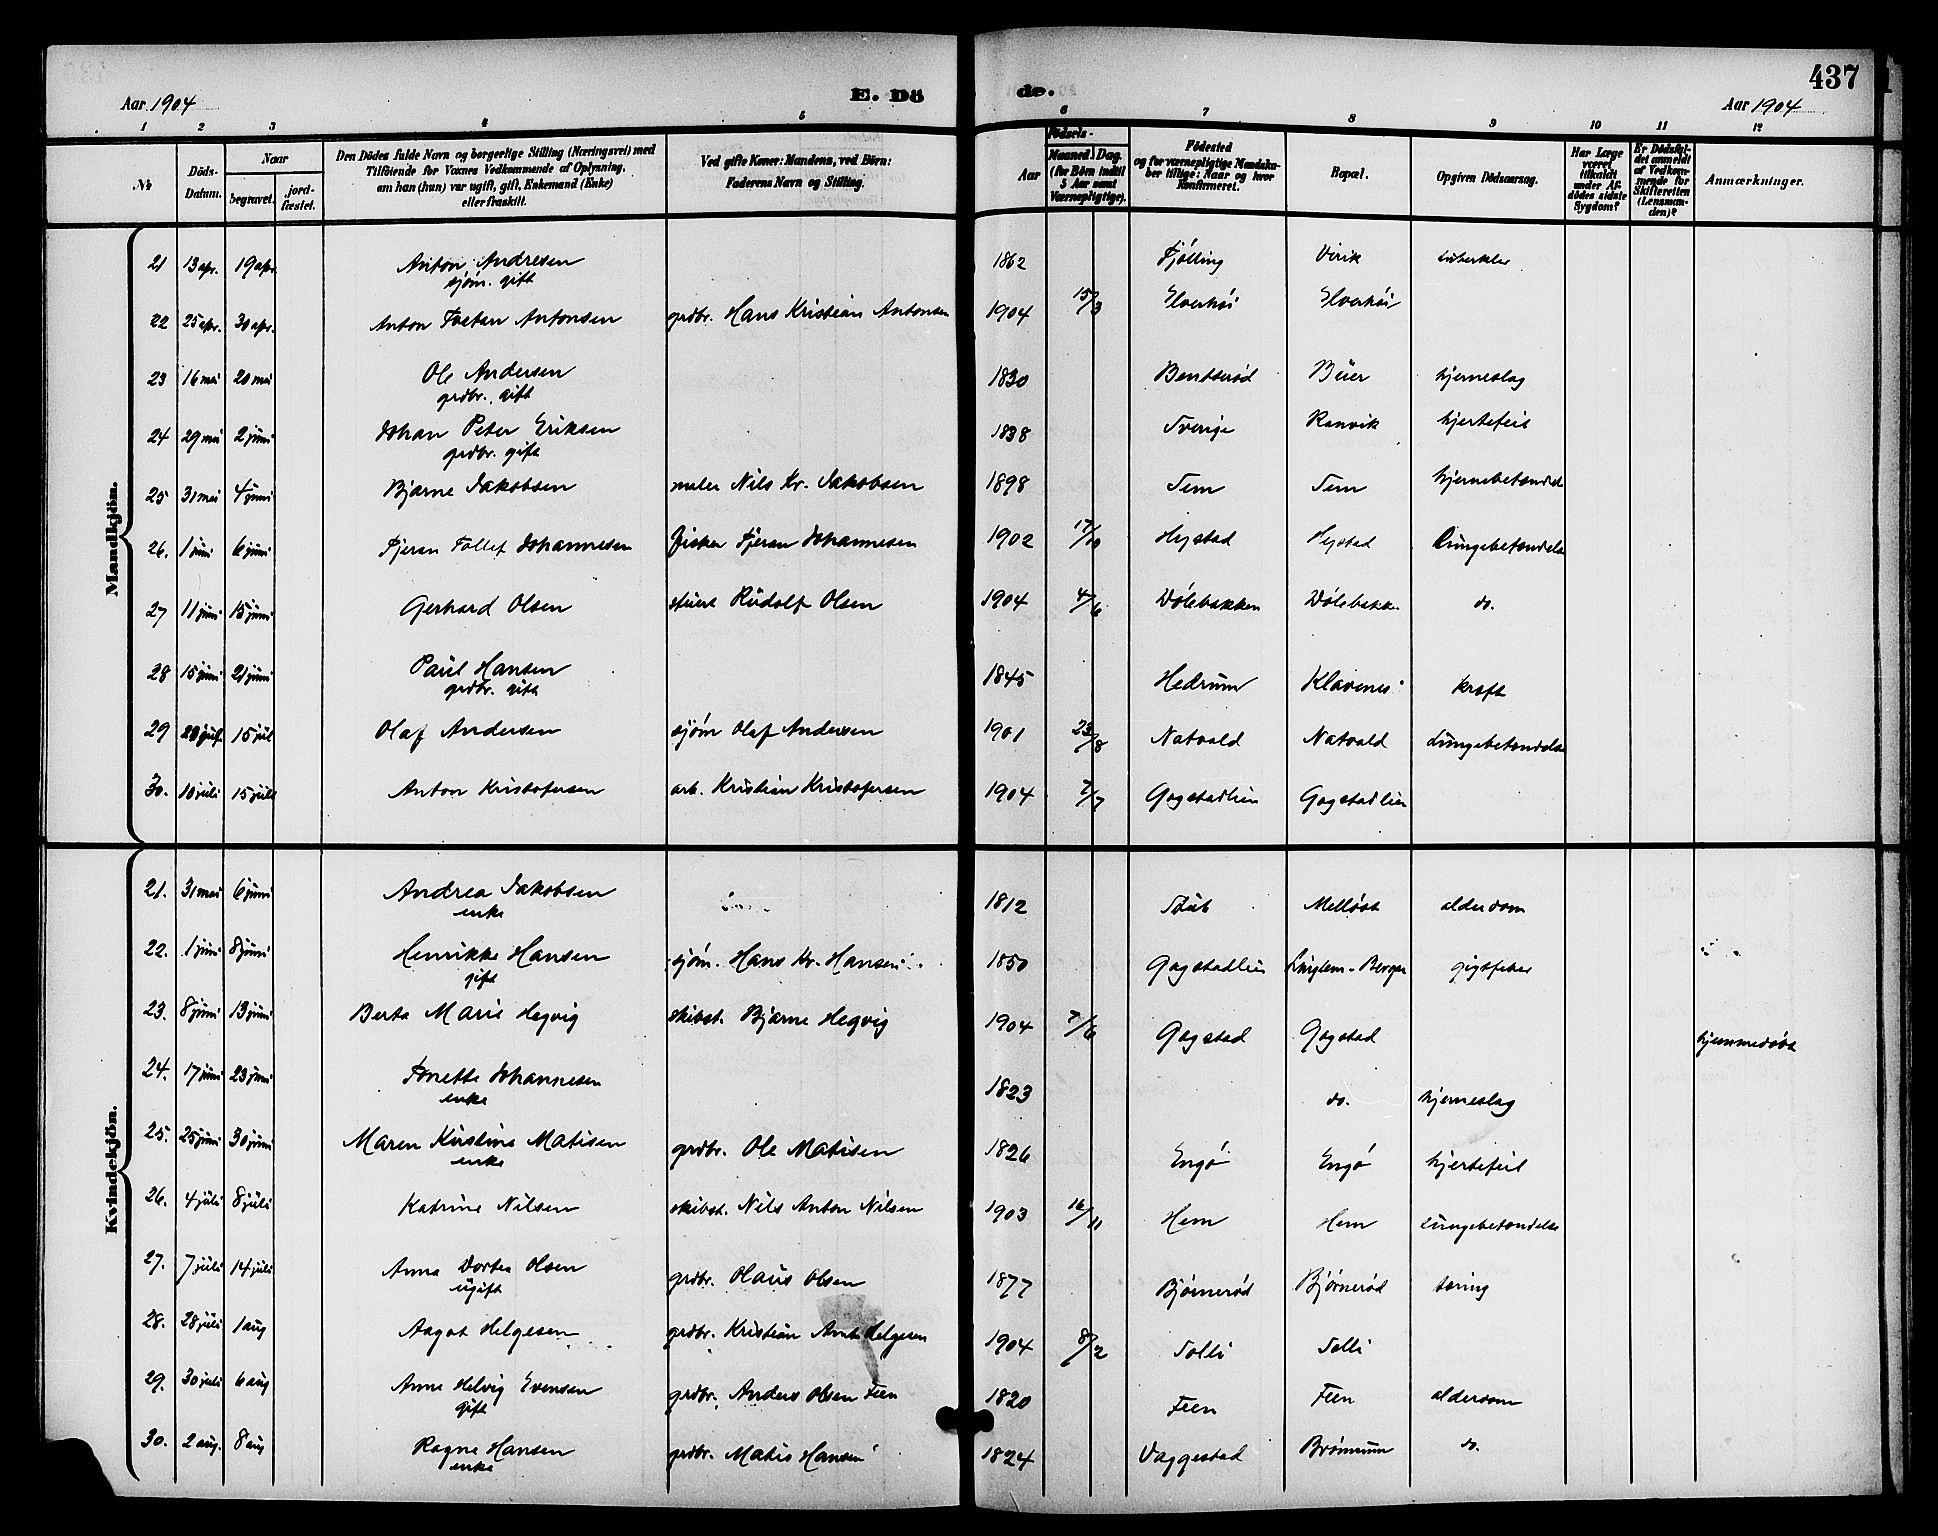 437
Aar 1904 E. Dö de. Aar 1904
1 2 3 4 5 6 7 8 9 10 11 12
№ Döds-Datum. Naar begravet. jord-fæstet. Den Dödes fulde Navn og borgerlige Stilling (Næringsvei) med Tilföiende for Voxnes Vedkommende af Oplysning, om han (hun) var ugift, gift, Enkemand (Enke) eller fraskilt. Ved gifte Koner: Mandens, ved Börn: Faderens Navn og Stilling. Aar Födsels- Maaned. Dag. (for Börn indtil 5 Aar samt Værnepligtige). Födested og for værnepligtige Mandskaber tillige: Naar og hvor konfirmeret. Bopæl. Opgiven Dödsaarsag. Har Læge været tilkaldt under Afdödes sidste Sygdom? Er Dödsfaldet anmeldt af Vedkommende for Skifteretten (Lensmanden)? Anmærkninger.
Mandkjön.
21 13 apr. 19 apr. Anton Andresen 1862 Fjølling Virik tuberkler
sjøm. gift
22 25 apr. 30 apr. Anton Antonsen grdbr. Hans Kristian Antonsen 1904 15/3 Elverhøi Elverhøi
23 16 mai 20 mai Ole Andersen 1830 Bentserød Buer hjerneslag
grdbr. gift
24 29 mai 2 juni Johan Peter Eriksen 1838 Sverige Ranvik hjertefeil
grdbr. gift
25 31 mai 4 juni Bjarne Jakobsen maler Nils Kr. Jakobsen 1898 Tem Tem hjernebetændelse
26. 1 juni 6 juni Fjeran Tollef Johannesen fisker Fjeran Johannesen 1902 17/10 Hystad Hystad Lungebetændelse
27 11 juni 15 juni Gerhard Olsen stuert Rudolf Olsen 1904 4/6 Dølebakken Dølebakken do.
28 15 juni 21 juni Paul Hansen 1845 Hedrum Klavenes kræft
grdbr. gift
29 15 jul Olaf Andersen sjøm Olaf Andersen 1901 23/8 Natvald Natvald Lungebetændelse
30. 10 juli 15 juli Anton Kristofersen arb. Kristian Kristofersen 1904 7/7 Gogstadlien Gogstadlien
Kvindekjön.
21. 31 mai 6 juni Andrea Jakobsen 1812 Stub Melløst alderdom
enke
22. 1 juni 8 juni Henrikke Hansen sjøm. Hans Kr. Hansen 1850 Gogstadlien gigtfeber
gift
23. 8 juni 13 juni Berta Marie Hegvig skibst. Bjarne Hegvig 1904 7/6 Gogstad Gogstad hjemmedøbt
24. 17 juni 23 juni Tonette Johannesen 1823 do. hjerneslag
enke
25. 25 juni 30 juni Maren Kirstine Matisen grdbr. Ole Matisen 1826 Engø Engø hjertefeil
enke
26. 4 juli 8 juli Katrine Nilsen skibst. Nils Anton Nilsen 1903 16/11 Hem Hem Lungebetændelse
27. 7 juli 14 juli Anna Dortea Olsen grdbr. Olaus Olsen 1877 Bjørnerød Bjørnerød tæring
ugift
28. 28 juli 1 aug Aagot Helgesen grdbr. Kristian Helgesen 1904 8/2 Solli Solli
29. 30 juli 6 aug Anne Helvig Evensen grdbr. Anders Olsen Feen 1820 Feen Feen alderdom
gift
30. 2 aug. 8 aug Ragne Hansen grdbr. Matis Hansen 1824 Vaggestad Brønnum do.
enke